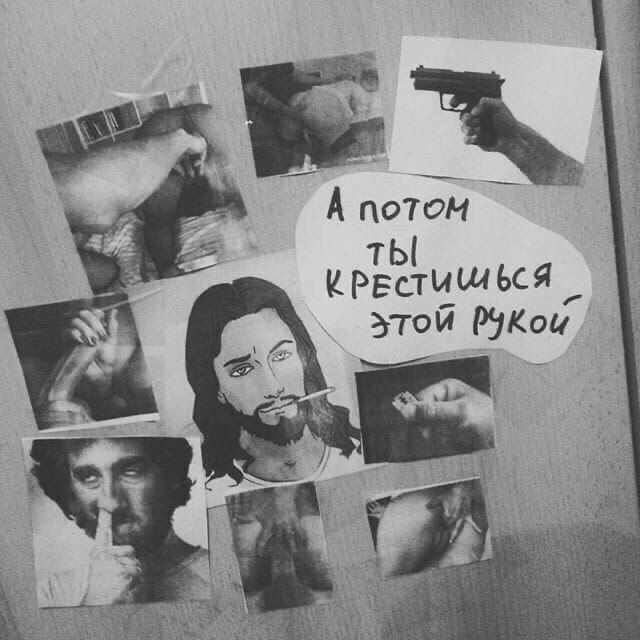 А ПОТОМ
ТЫ
КРЕСТИШЬСЯ
ЭТОЙ РУКОЙ